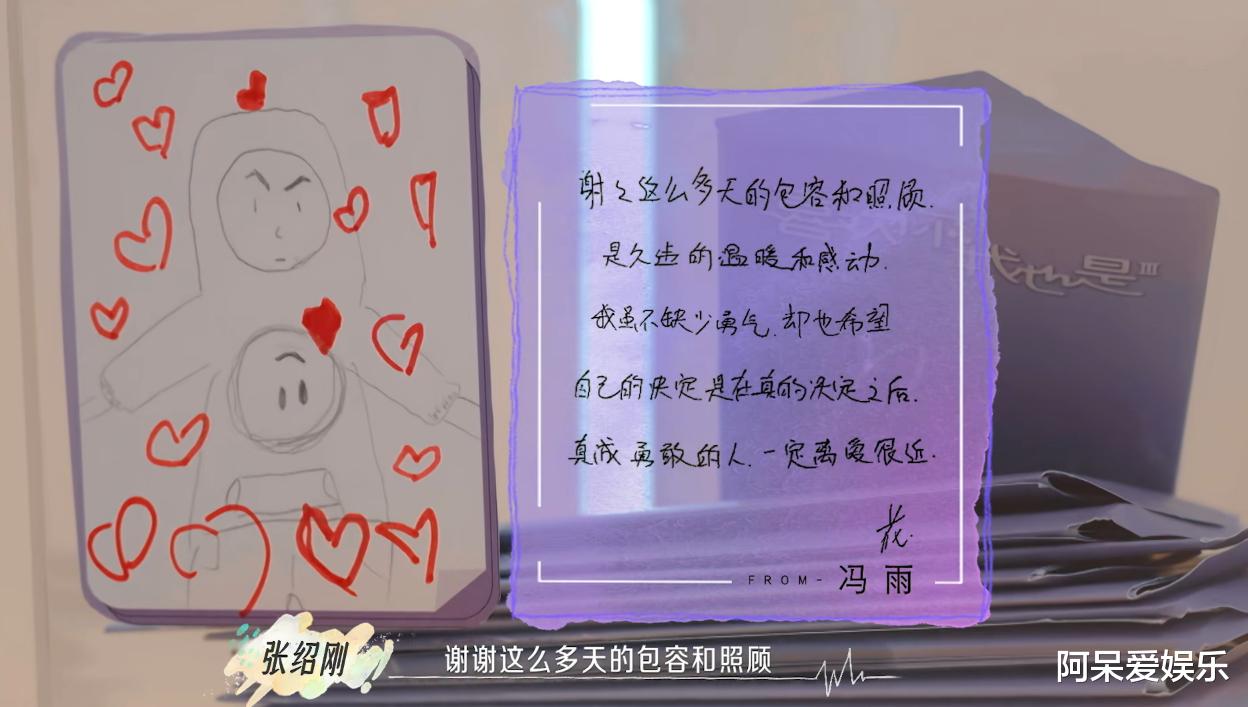 谢谢这么多天的包容和照顾.
是久违的温暖和感动.
我虽不缺少勇气.却也希望
自己的决定是在真的决定之后.
真成勇敢的人.一定离爱很近.
FROM- 冯雨
我也是III
张绍刚
谢谢这么多天的包容和照顾
阿呆爱娱乐